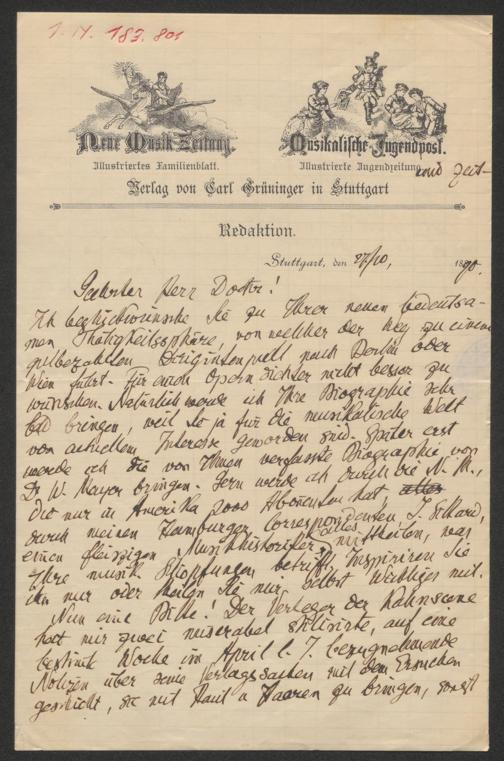 I. N. 183.801
Neue Musik-Zeitung.
Musikalische Jugendpost.
Illustriertes Familienblatt.
Illustrierte Jugendzeitung
und Zeit-
Verlag von Carl Grüninger in Stuttgart
Redaktion.
Stuttgart, den 27/10, 1890.
Geehrter Herr Doktor!
Ich beglückwünsche Sie zu Ihrer neuen bedeutsa-
men Thätigkeitssphäre, von welcher der Weg zu einem
gutbezahlten nach Berlin oder
Wien führt. Für einen Operndichter nichts besser zu
wünschen. Natürlich werde ich Ihre Biographie sehr
bald bringen, weil Sie ja für die musikalische Welt
von actuellem Interesse geworden sind. Später erst
werde ich die von Ihnen verfasste Biographie von
Dr. W. Mayer bringen. Gern werde ich durch die N. M.,
die nur in Amerika 2000 Abonenten hat
durch meinen Hamburger Correspondenten J. Sittard,
einen fleissigen Musikhistoriker, Alles mittheilen, was
Ihre musik. Schöpfungen betrifft. Inspiriren Sie
ihn nur oder theilen Sie mir selbst Wichtiges mit.
Nun eine Bitte! Der Verleger der Kahnscene
hat mir zwei miserabel stilisirte, auf eine
bestimte Woche im April l. J. bezugnehmende
Notizen über seine Verlagssachen mit dem Ersuchen
geschickt, sie mit Haut u Haaren zu bringen, sonst